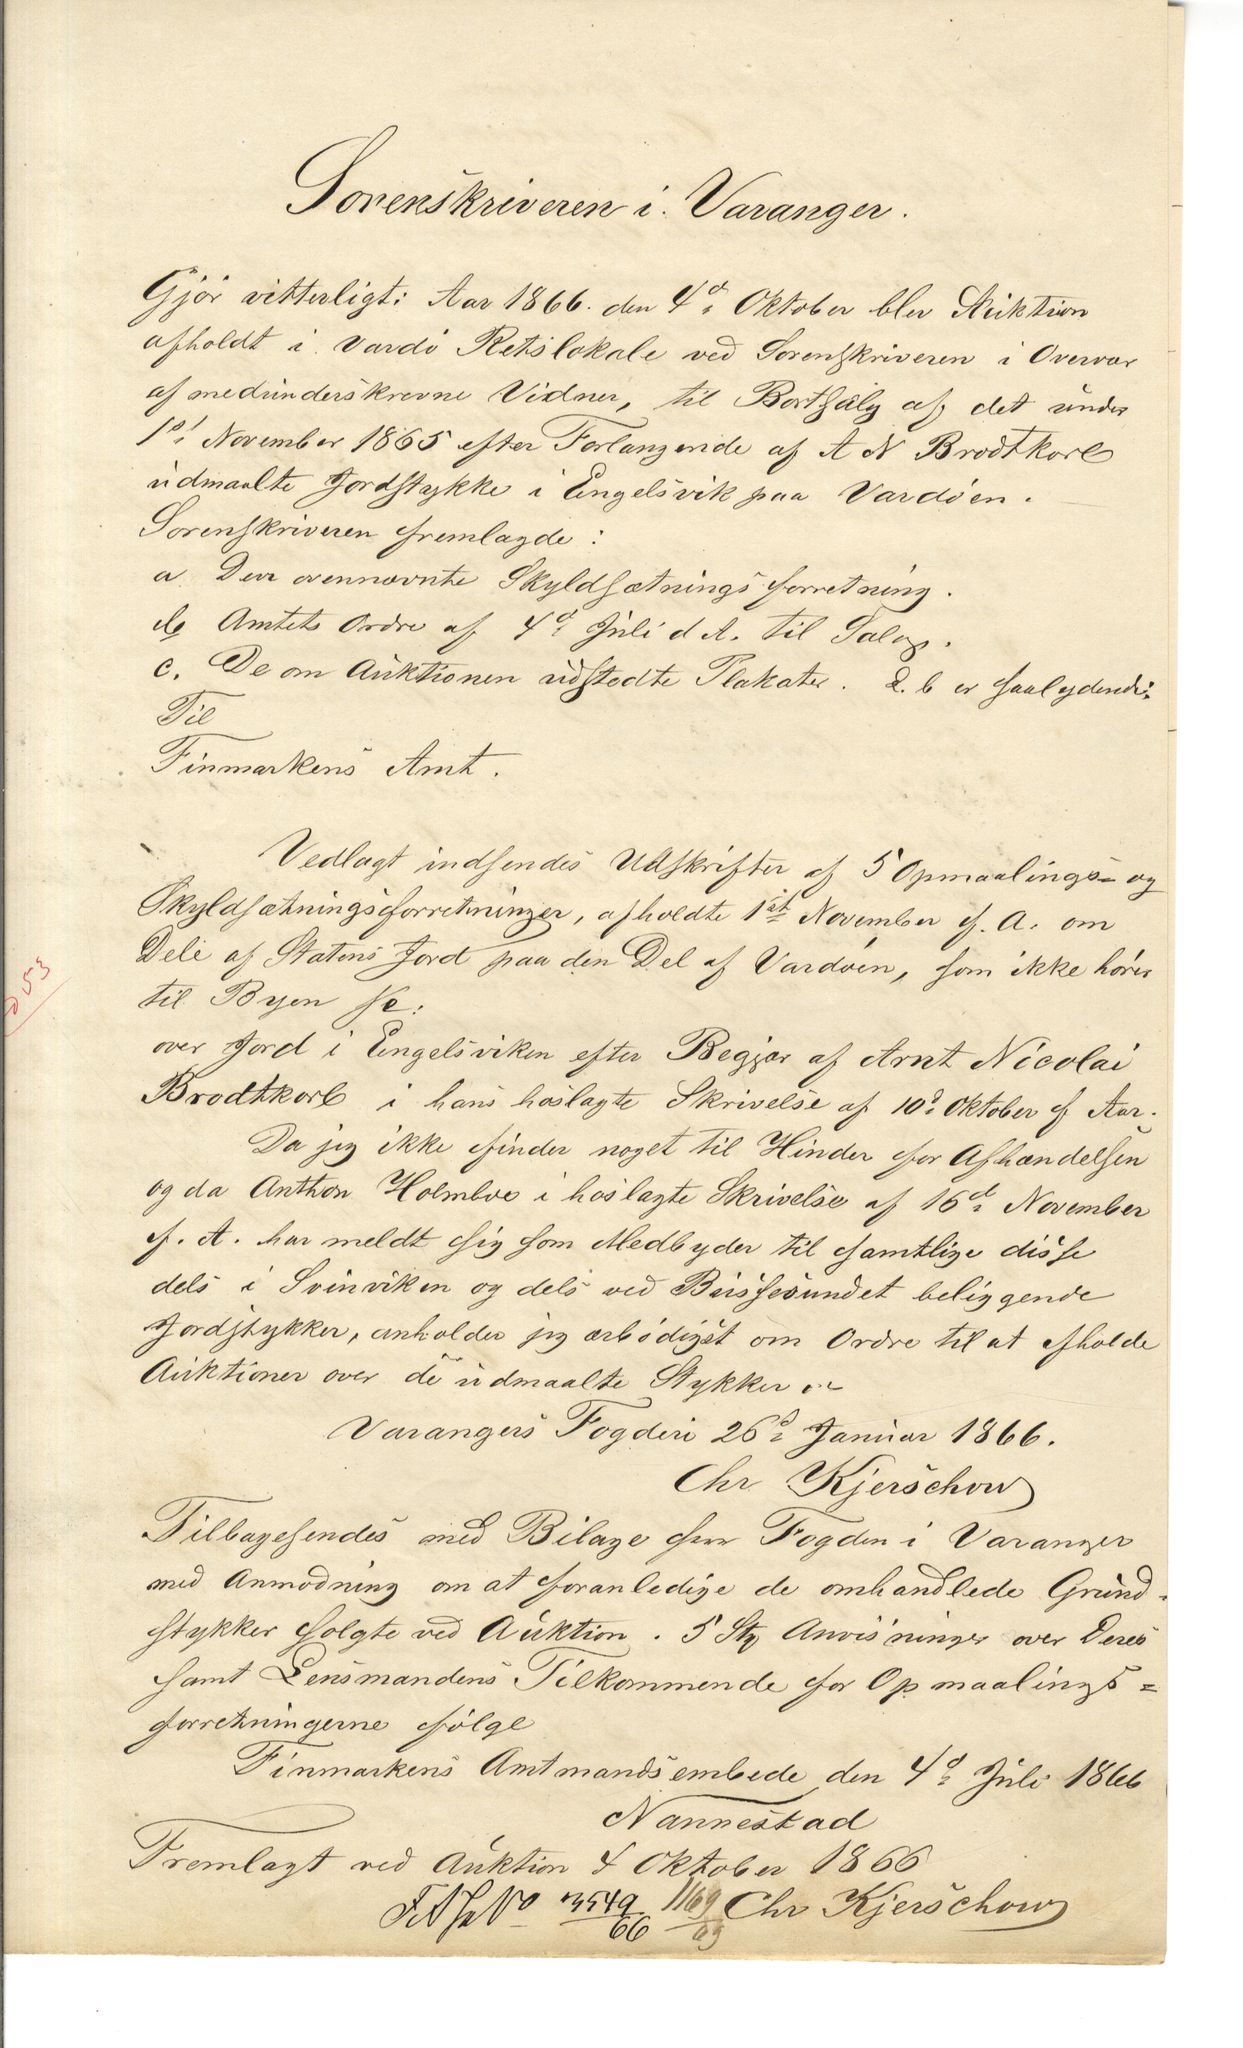 Sorenskriveren i Varanger.
Gjör vitterligt: Aar 1866 den 4d Oktober blev Auktion
afholdt i Vardö Retslokale ved Sorenskriveren i Overvær
af medunderskrevne Vidner, til Bortsalg af det under
1st November 1865 efter Forlangende af A N Brodtkorb
udmaalte Jordstykke i Engelsvik paa Vardöen.
Sorenskriveren fremlagde:
a Den ovennævnte Skyldsætningsforretning.
b Amtets Ordre af 4d Juli d A. til Salg.
c. De om Auktionen udstedte Plakater. L. b er saalydende:
Til
Finmarkens Amt.
Vedlagt indsendes Udskrifter af 5 Opmaalings= og
Skyldsætningsforretninger, afholdte 1st November f. A. om
Dele af Statens Jord paa den Del af Vardöen, som ikke hörer
til Byen
over Jord i Engelsviken efter Begjær af Arnt Nicolai
Brodtkorb i hans hoslagte Skrivelse af 10d Oktober f Aar.
Da jeg ikke finder noget til Hinder for Afhændelsen
og da Anthon Holmboe i hoslagte Skrivelse af 16d November
f. A. har meldt sig som Medbyder til samtlige disse
dels i Svinviken og dels ved Bussesundet beliggende
Jordstykker, anholder jeg ærbödigst om Ordre til at afholde
Auktioner over de udmaalte Stykker
Varangers Fogderi 26d Januar 1866.
Chr Kjerschow
Tilbagesendes med Bilage Fogden i Varanger
med Anmodning om at foranledige de omhandlede Grund-
stykker solgte ved Auktion. 5 Stk Anvisninger over Deres
samt Lensmandens Tilkommende for Opmaalings=
forretningerne fölge
Finmarkens Amtmandsembede den 4d Juli 1866
Nannestad
Fremlagt ved Auktion 4 Oktober 1866
3549/66 1169/69 Chr Kjerschow